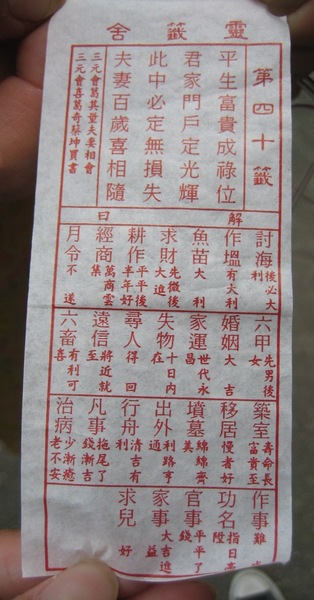 靈籤舍
第四十籤
平生富貴成祿位
君家門戶定光輝
此中必定無損失
夫妻百歲喜相隨
三元會葛其量夫妻相會
三元會喜葛奇蔡坤買書
解曰
討海 後必大利
作塭 有大利
魚苗 大利
求財 先微後大進
耕作 平平後半年好
經商 萬商雲集
月令 不遂
六甲 先男後女
婚姻 大吉
家運 世代永昌
失物 十日內在
尋人 得回
遠信 將近就至
六畜 有利可喜
築室 壽命長富貴至
移居 慢者好
墳墓 綿綿齊美
出外 利路亨通
行舟 清吉有利
凡事 拖尾了錢漸吉
治病 少漸癒老不安
作事 難
功名 指日高陞
官事 平平了錢
家事 大吉進益
求兒 好